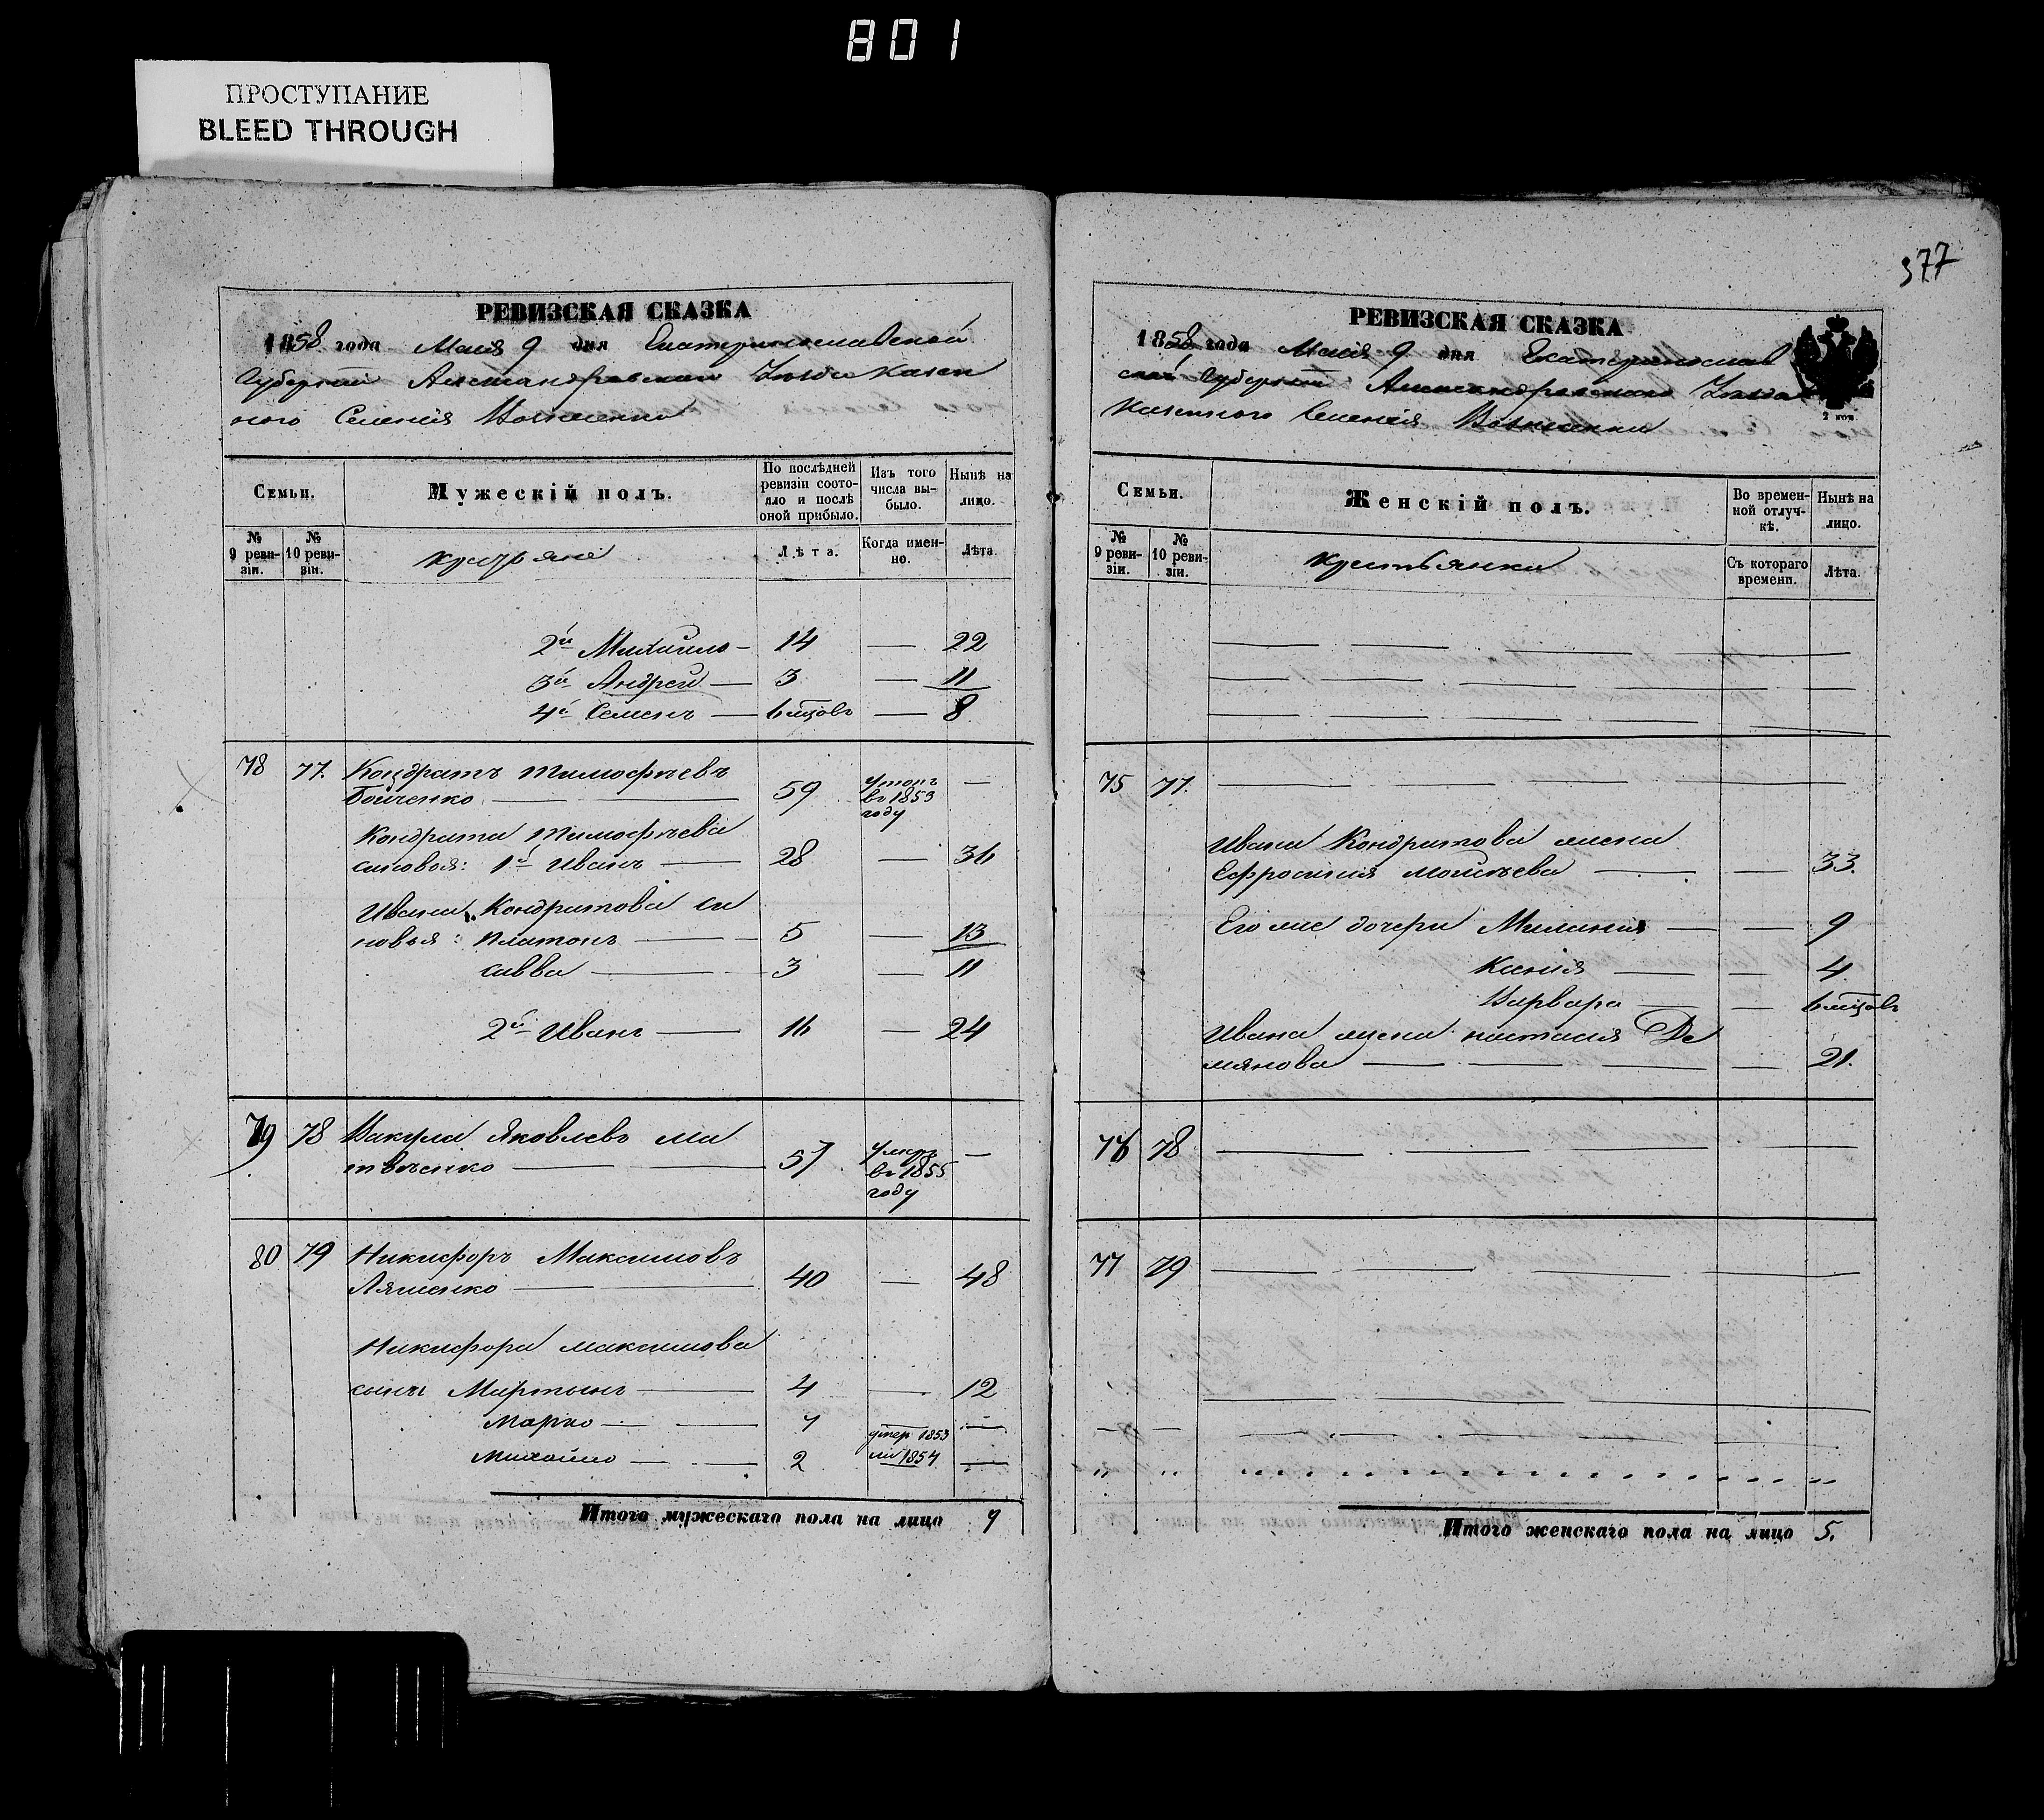 801
ПРОСТУПАНИЕ
BLEED THROUGH
РЕВИЗСКАЯ СКАЗКА
1858 года Маія 9 дня Екатеринославской
Губерніи Александровскаго Уѣзда Казен
ного Селенія Вознесенки
Семьи.
Мужескій полъ.
По послѣдней ревизіи состояло и послѣ оной прибыло.
Изъ того числа выбыло.
Нынѣ на лицо.
№ 9 ревизіи.
№ 10 ревизіи.
Лѣта.
Когда именно.
Лѣта.
2й Михайло — 14 — 22
3й Андрей — 3 — 11
4й Семенъ — 6 мцовъ — 8
78 77. Кондратъ Тимофѣевъ
Бойченко — 59 Утопъ въ 1853 году —
Кондрата Тимофѣева
синовья: 1й Иванъ — 28 — 36
Ивана Кондратова си
новья: Платонъ — 5 — 13
Савва — 3 — 11
2й Иванъ — 16 — 24
79 78 Вакула Яковлевъ Ма
твѣенко — 57 Умеръ въ 1855 году —
80 79 Никифоръ Максимовъ
Ляшенко — 40 — 48
Никифора Максимова
сыны Мартынъ — 4 — 12
Марко — умер 1853 —
Михайло — 2 1854 —
Итого мужескаго пола на лицо 9
377
РЕВИЗСКАЯ СКАЗКА
1858 года Маія 9 дня Екатеринослав
ской Губерніи Александровскаго Уѣзда
Казенного Селенія Вознесенки
2 коп.
Семьи.
Женскій полъ.
Во временной отлучкѣ.
Нынѣ на лицо.
№ 9 ревизіи.
№ 10 ревизіи.
Крестьянки
Съ котораго времени.
Лѣта.
75 77.
Ивана Кондратова жена
Ефросинія Мойсѣева — — 33.
Его же дочери Миланія — — 9
Ксенія — — 4
Варвара — — 6 мцовъ
Ивана жена Настасія Де
мянова — — 21.
76 78
77 79
Итого женскаго пола на лицо 5.